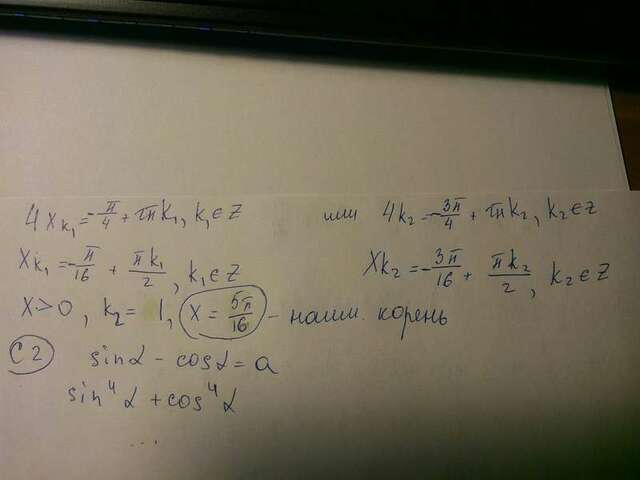 4x_{k_1} = -\frac{π}{4} + πk_1, k_1 ∈ Z или 4_{k_2} = -\frac{3π}{4} + πk_2, k_2 ∈ Z
x_{k_1} = -\frac{π}{16} + \frac{πk_1}{2}, k_1 ∈ Z x_{k_2} = -\frac{3π}{16} + \frac{πk_2}{2}, k_2 ∈ Z
x > 0, k_2 = 1, x = \frac{5π}{16} - наим. корень
C2 sinα - cosα = a
sin^4 α + cos^4 α
...